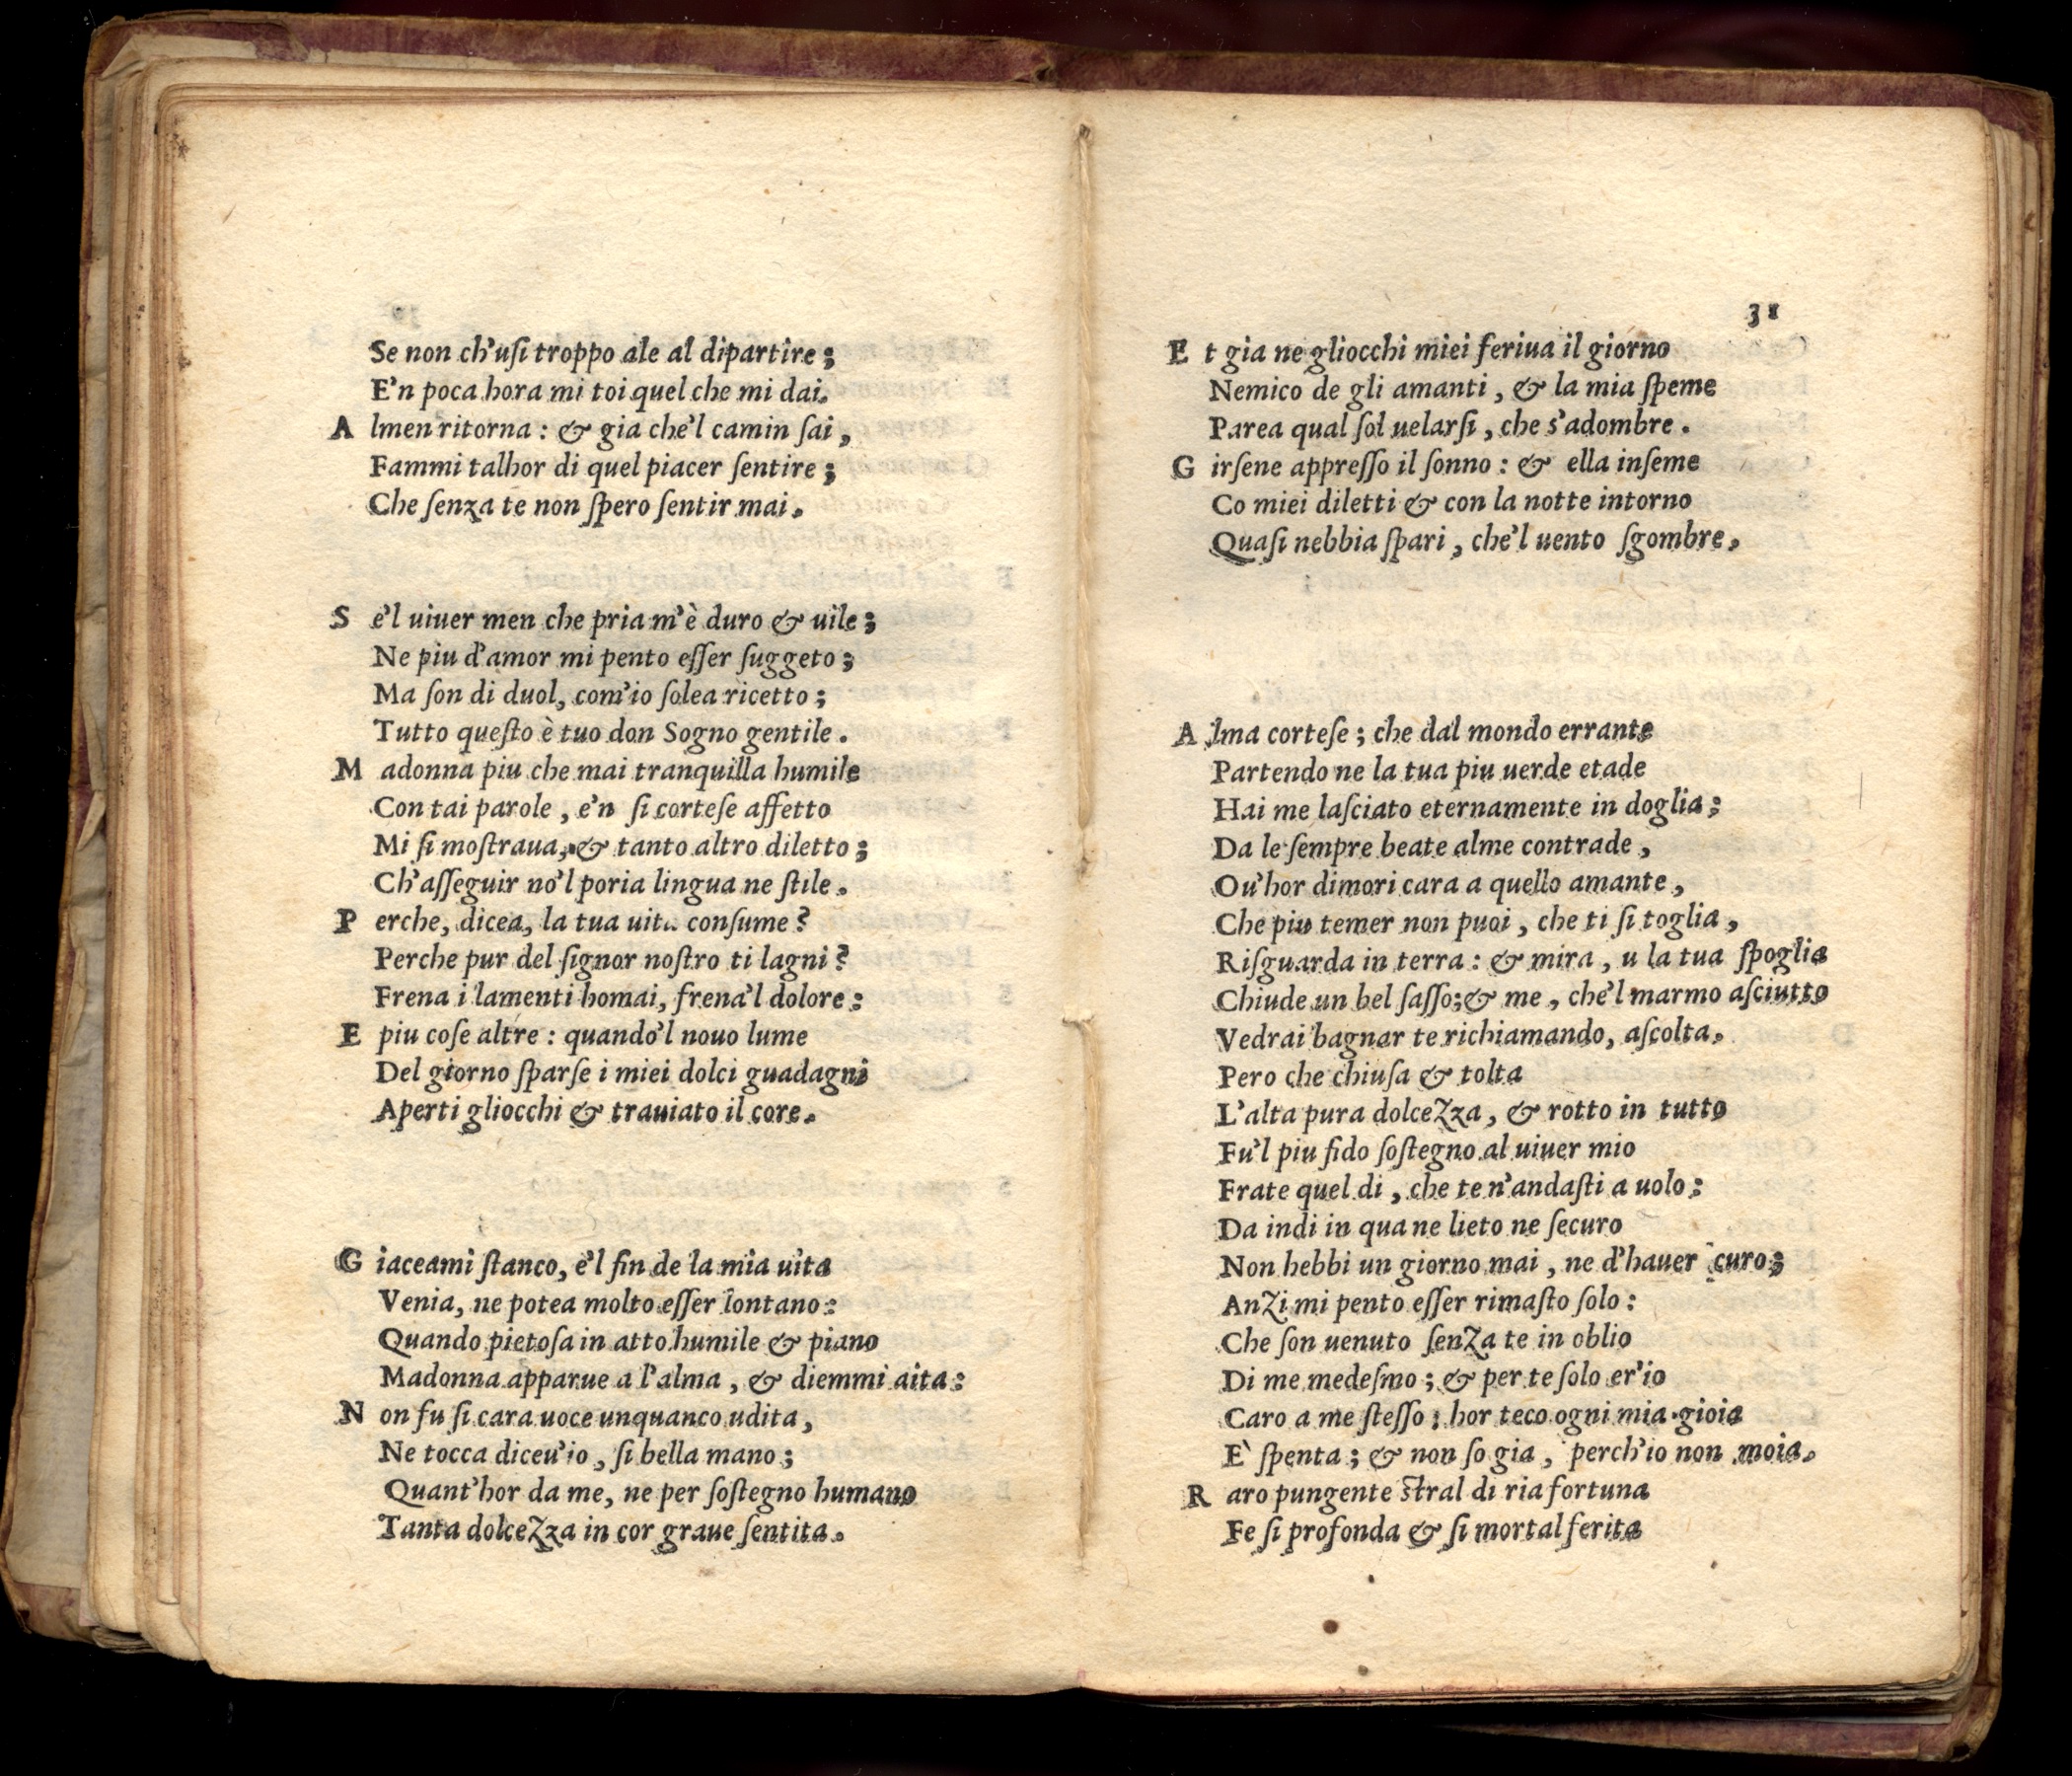 Se non ch'uſi troppo ale al dipartire;
E'n poca hora mi toi quel che mi dai.
A lmen ritorna: & gia che'l camin ſai,
Fammi talhor di quel piacer ſentire;
Che ſenza te non ſpero ſentir mai.
S e'l uiuer men che pria m'è duro & uile;
Ne piu d'amor mi pento eſſer ſuggeto;
Ma ſon di duol, com'io ſolea ricetto;
Tutto queſto è tuo don Sogno gentile.
M adonna piu che mai tranquilla humile
Con tai parole, e'n ſi corteſe affetto
Mi ſi moſtraua, & tanto altro diletto;
Ch'aſſeguir no'l poria lingua ne ſtile.
P erche, dicea, la tua uita conſume?
Perche pur del ſignor noſtro ti lagni?
Frena i lamenti homai, frena'l dolore:
E piu coſe altre: quando'l nouo lume
Del giorno ſparſe i miei dolci guadagni
Aperti gliocchi & trauiato il core.
G iaceami ſtanco, e'l fin de la mia uita
Venia, ne potea molto eſſer lontano:
Quando pietoſa in atto humile & piano
Madonna apparue a l'alma, & diemmi aita:
N on fu ſi cara uoce unquanco udita,
Ne tocca diceu'io, ſi bella mano;
Quant'hor da me, ne per ſoſtegno humano
Tanta dolcezza in cor graue ſentita.
31
E t gia ne gliocchi miei feriua il giorno
Nemico de gli amanti, & la mia ſpeme
Parea qual ſol uelarſi, che s'adombre.
G irſene appreſſo il ſonno: & ella inſeme
Co miei diletti & con la notte intorno
Quaſi nebbia ſpari, che'l uento ſgombre.
A lma corteſe; che dal mondo errante
Partendo ne la tua piu uerde etade
Hai me laſciato eternamente in doglia;
Da le ſempre beate alme contrade,
Ou'hor dimori cara a quello amante,
Che piu temer non puoi, che ti ſi toglia,
Riſguarda in terra: & mira, u la tua ſpoglia
Chiude un bel ſaſſo; & me, che'l marmo aſciutto
Vedrai bagnar te richiamando, aſcolta.
Pero che chiuſa & tolta
L'alta pura dolcezza, & rotto in tutto
Fu'l piu fido ſoſtegno al uiuer mio
Frate quel di, che te n'andaſti a uolo:
Da indi in qua ne lieto ne ſecuro
Non hebbi un giorno mai, ne d'hauer curo;
Anzi mi pento eſſer rimaſto ſolo:
Che ſon uenuto ſenza te in oblio
Di me medeſmo; & per te ſolo er'io
Caro a me ſteſſo: hor teco ogni mia gioia
E` ſpenta; & non ſo gia, perch'io non moia.
R aro pungente ſtral di ria fortuna
Fe ſi profonda & ſi mortal ferita